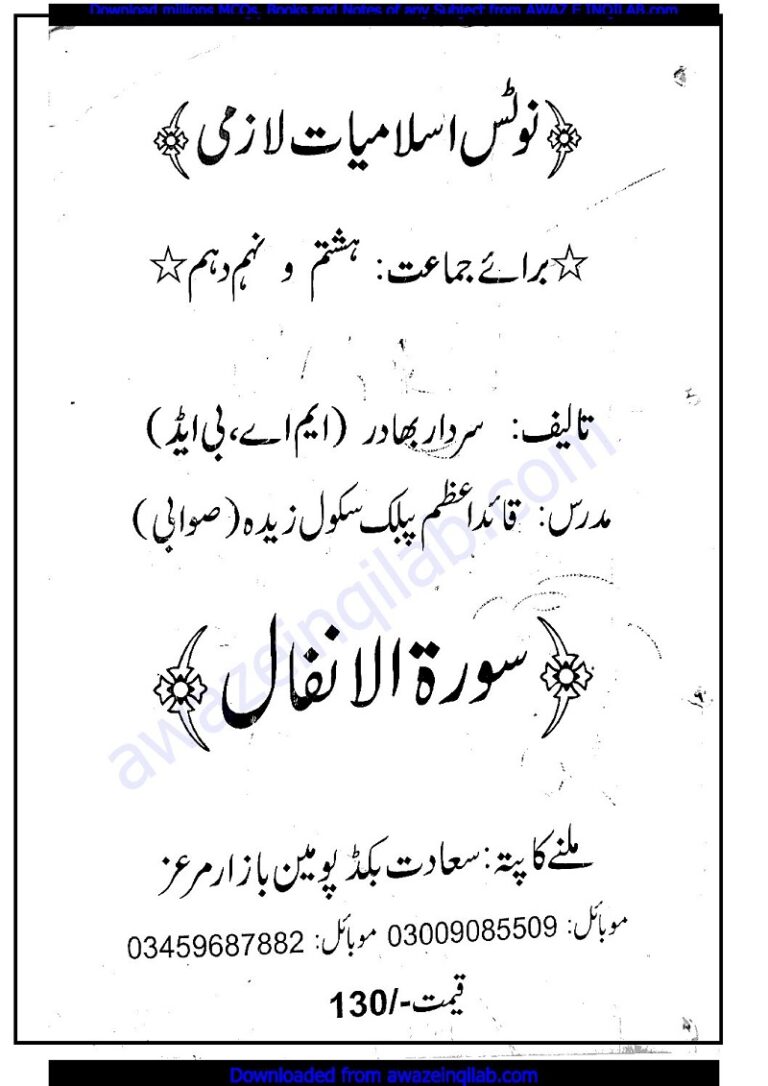 Download millions MCQs, Books and Notes of any Subject from AWAZ E INQILAB.com
نوٹس اسلامیات لازمی
☆برائے جماعت: ہشتم و نہم دہم☆
تالیف: سردار بھادر (ایم اے، بی ایڈ)
مدرس: قائداعظم پبلک سکول زیدہ (صوابی)
awazeinqilab.com
سورۃ الانفال
ملنے کا پتہ: سعادت بکڈپو مین بازار مرغز
موبائل: 03009085509 موبائل: 03459687882
قیمت-/130
Downloaded from awazeinqilab.com